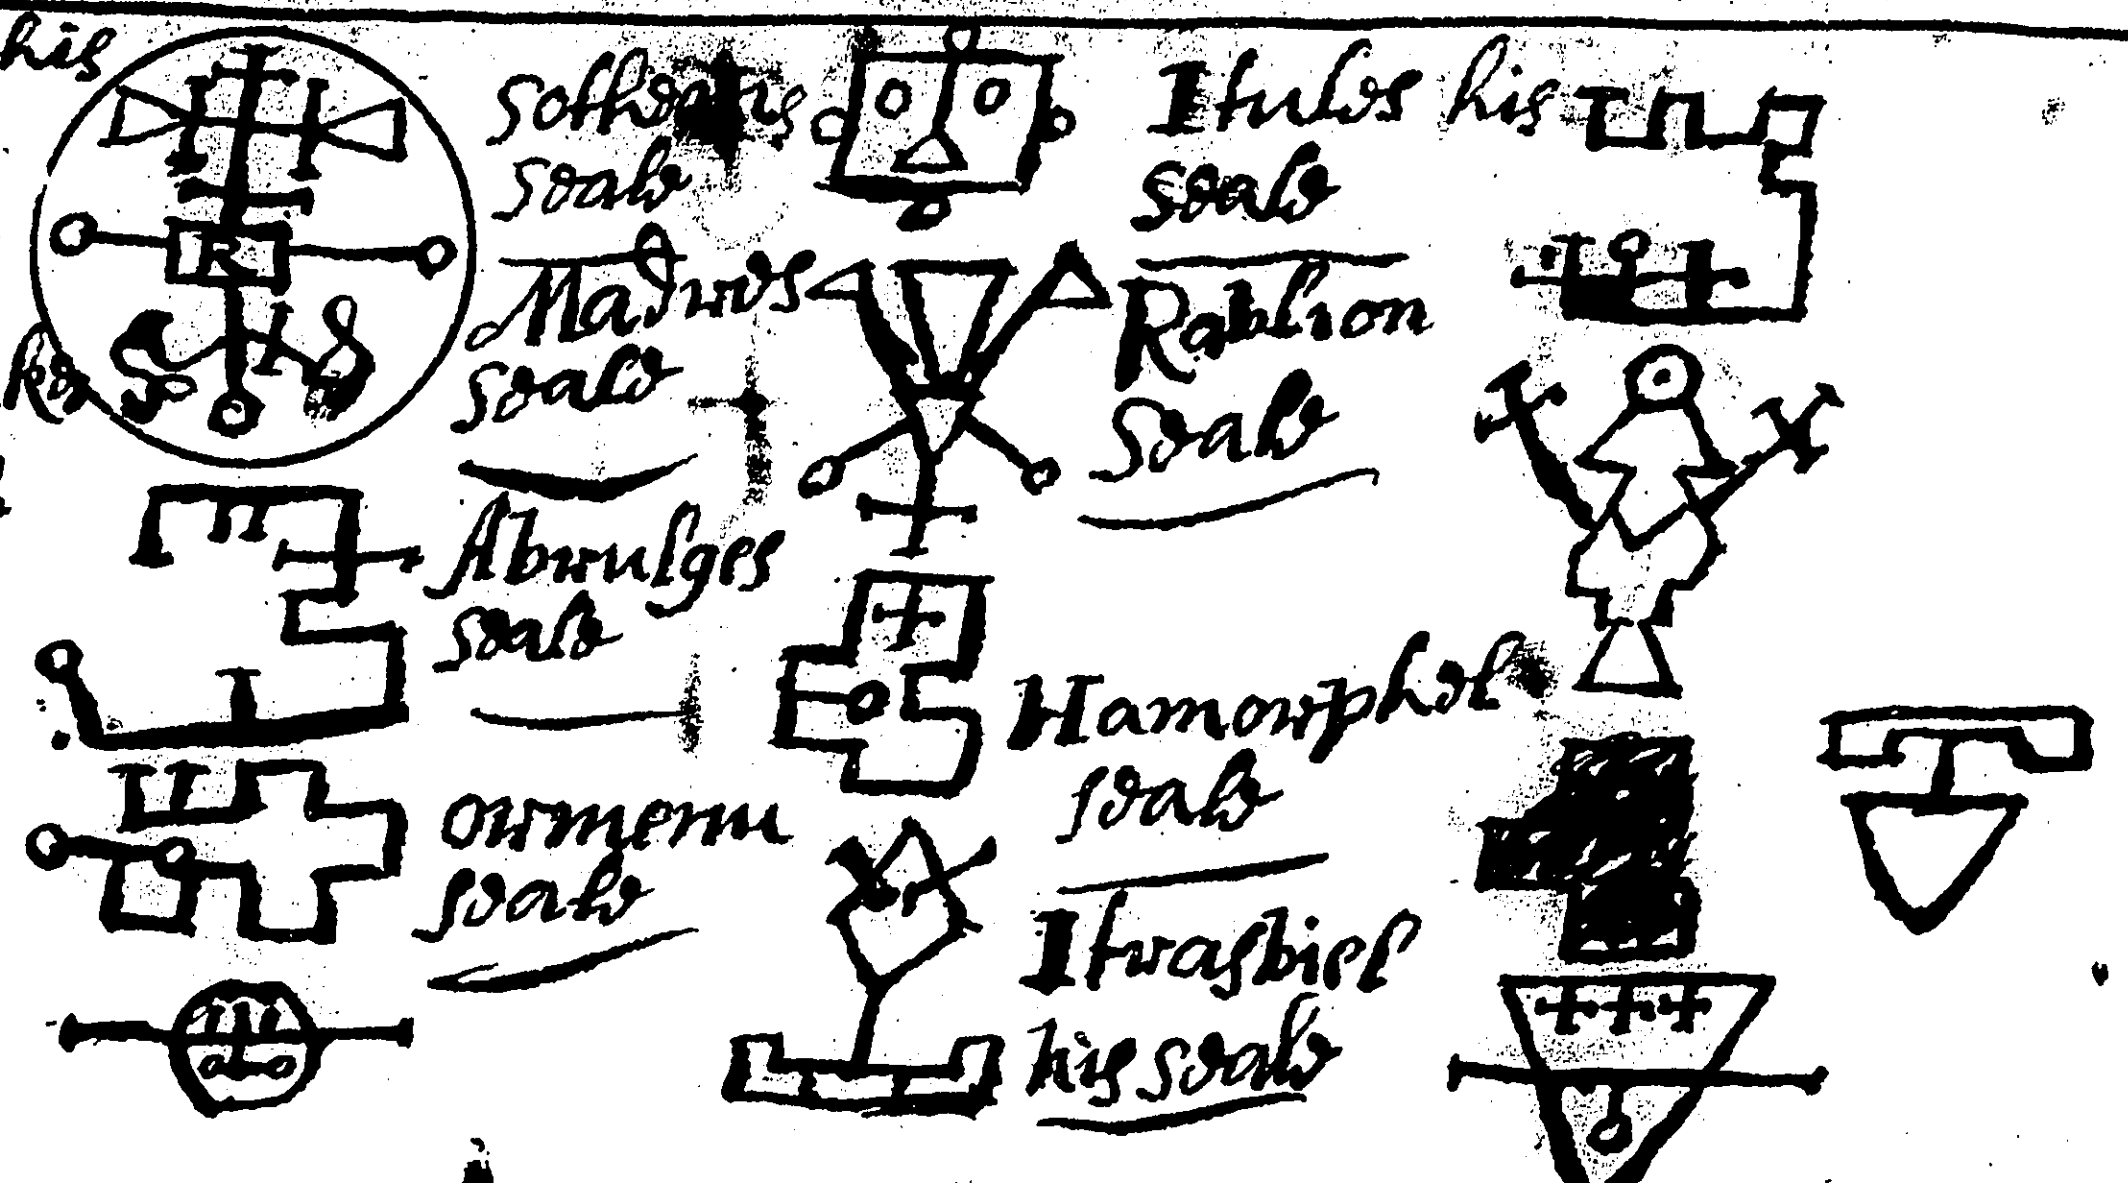 his
R
seale
Madres
seale
Abrulges
seale
Ormenu
seale
Itules his
seale
Rablion
Seale
Hamorphel
seale
Itrasbiel
his seale